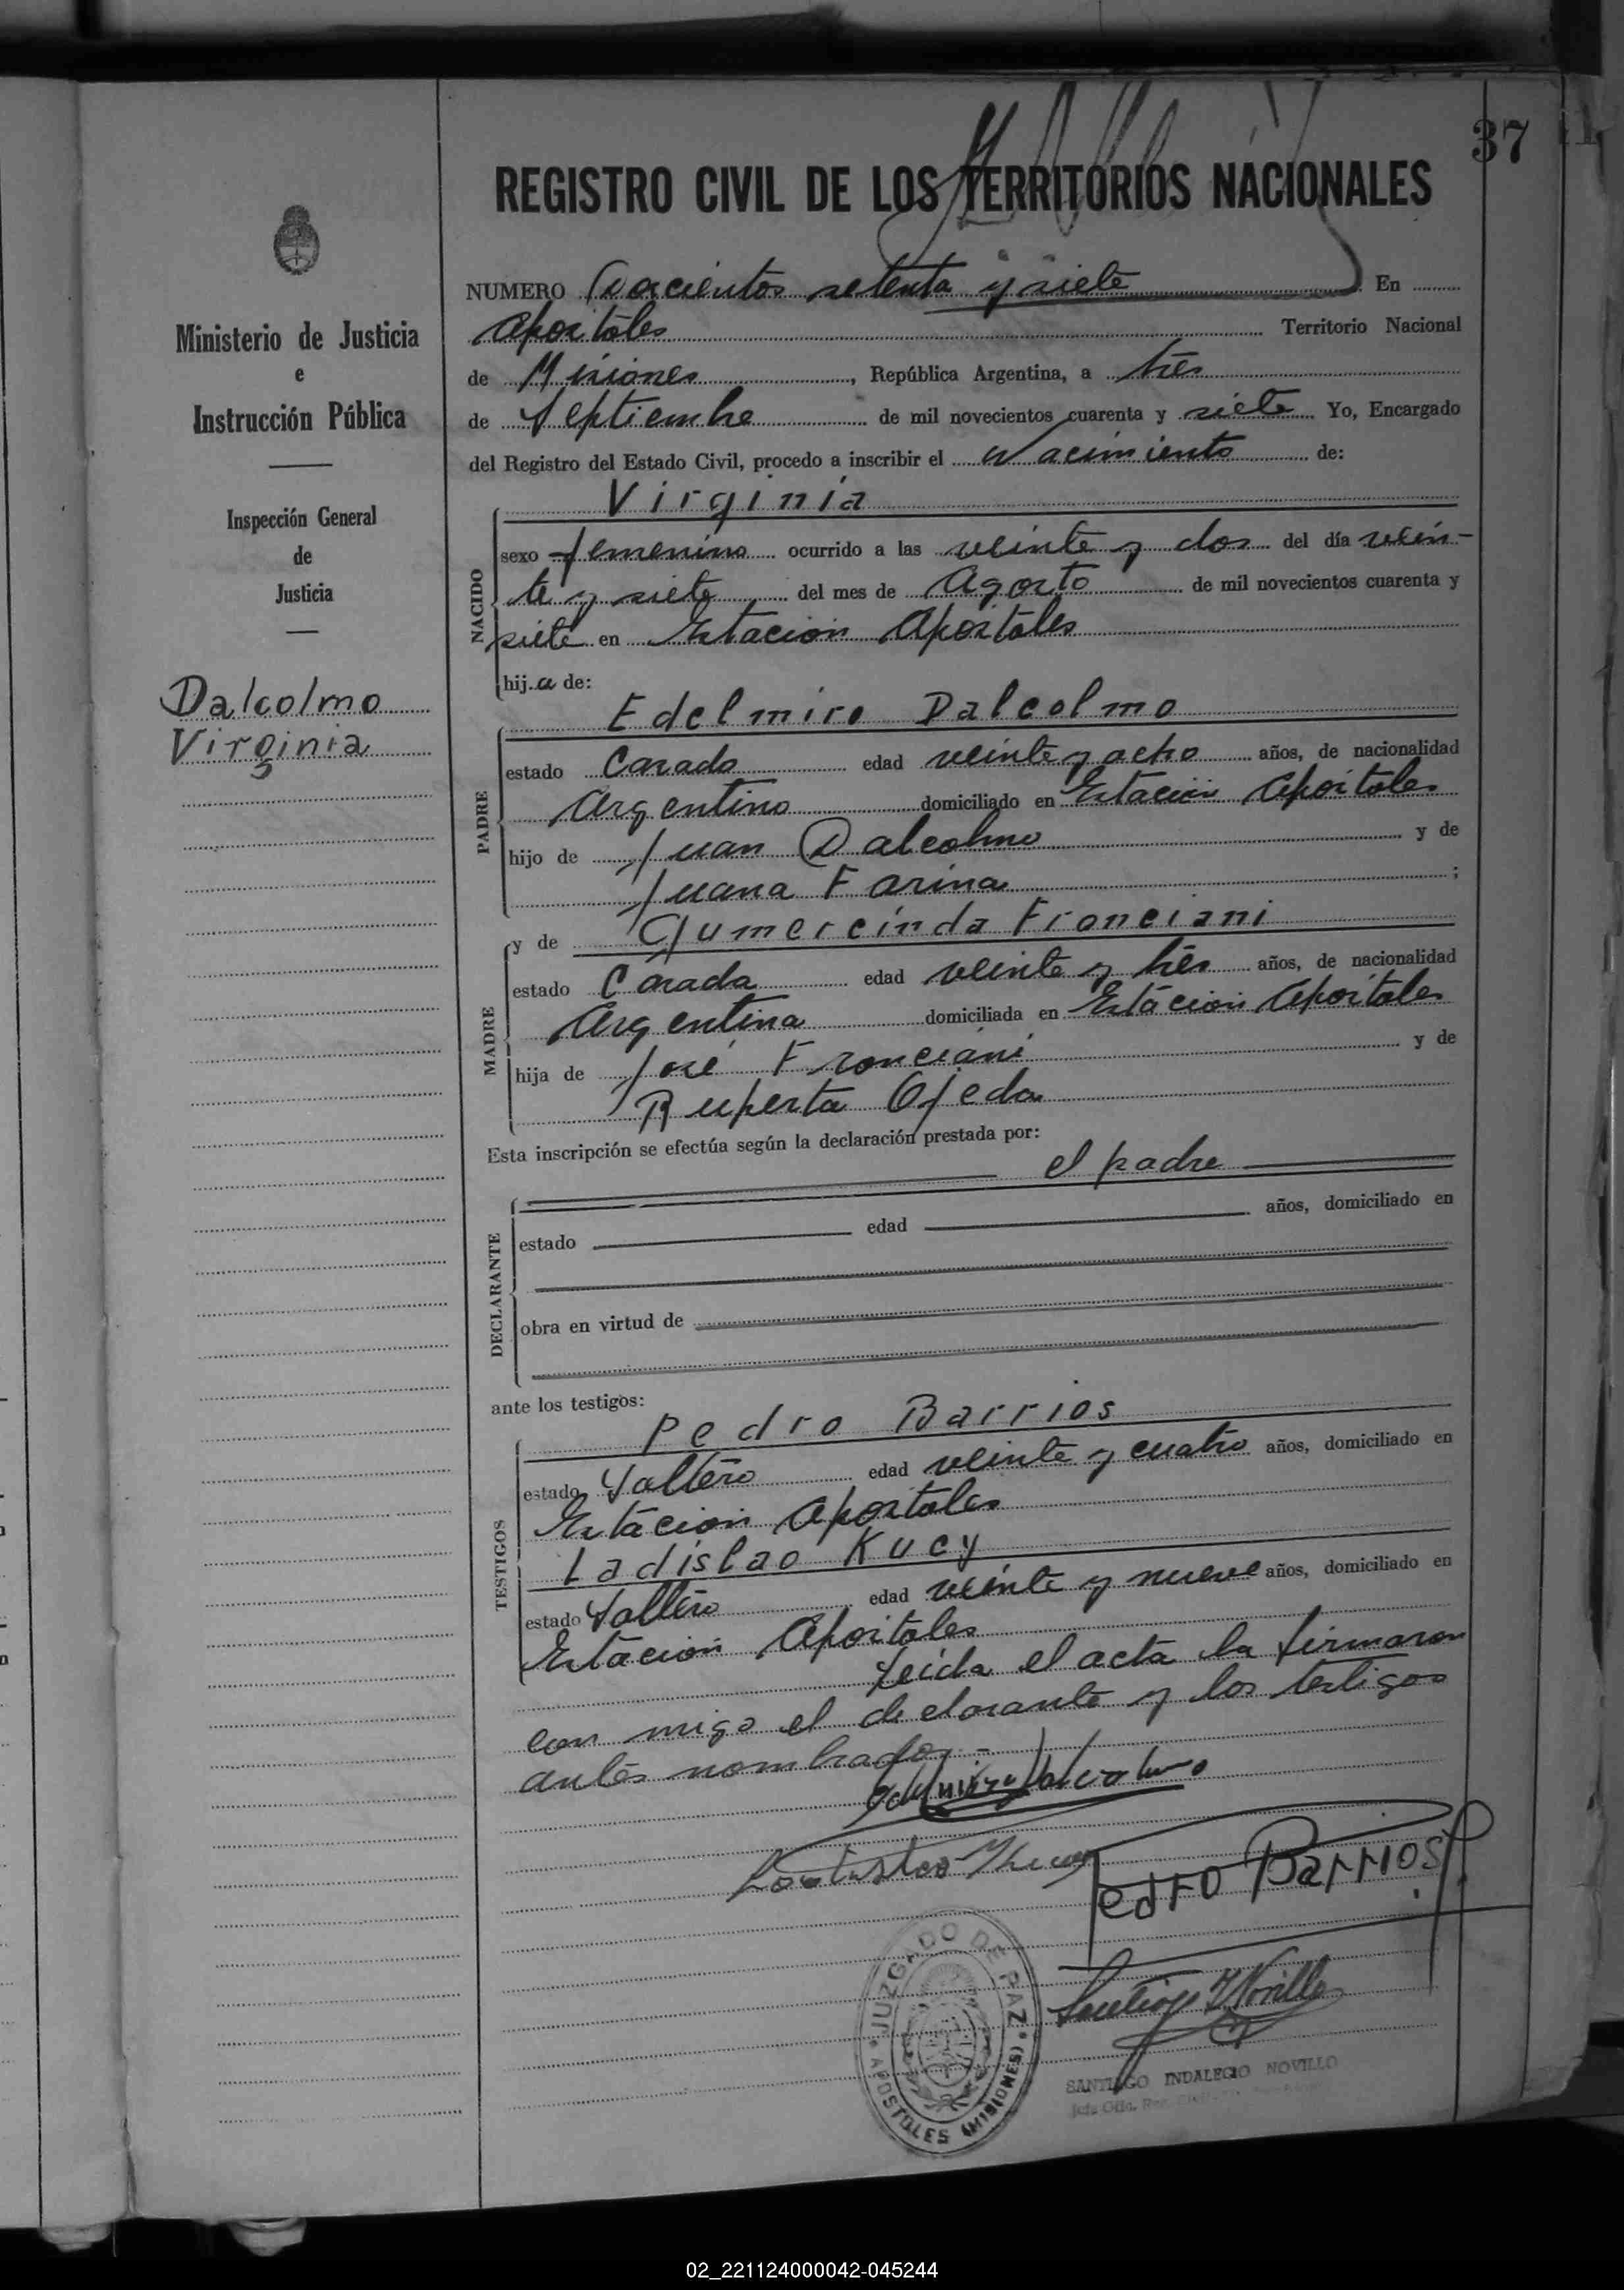 37
REGISTRO CIVIL DE LOS TERRITORIOS NACIONALES
Ministerio de Justicia
e
Instrucción Pública
Inspección General
de
Justicia
Dalcolmo
Virginia
NUMERO Doscientos setenta y siete En
Apostoles Territorio Nacional
de Misiones, República Argentina, a tres
de Septiembre de mil novecientos cuarenta y siete Yo, Encargado
del Registro del Estado Civil, procedo a inscribir el Nacimiento de:
NACIDO
Virginia
sexo femenino ocurrido a las veinte y dos del día vein-
te y siete del mes de Agosto de mil novecientos cuarenta y
siete en Estacion Apostoles
hija de:
PADRE
Edelmiro Dalcolmo
estado Casado edad veinte y ocho años, de nacionalidad
Argentino domiciliado en Estación Apostoles
hijo de Juan Dalcolmo y de
Juana Farina ;
MADRE
y de Gumercinda Fronciani
estado Casada edad veinte y tres años, de nacionalidad
Argentina domiciliada en Estacion Apostoles
hija de José Fronciani y de
Ruperta Ojeda
Esta inscripción se efectúa según la declaración prestada por:
el padre
DECLARANTE
estado edad años, domiciliado en
obra en virtud de
ante los testigos:
TESTIGOS
Pedro Barrios
estado Soltero edad veinte y cuatro años, domiciliado en
Estacion Apostoles
Ladislao Kucy
estado Soltero edad veinte y nueve años, domiciliado en
Estacion Apostoles
Leida el acta la firmaron
con migo el declarante y los testigos
antes nombrados.-
Edelmiro Dalcolmo
Pedro Barrios
JUZGADO DE PAZ
APOSTOLES (MISIONES)
SANTIAGO INDALECIO NOVILLO
02_221124000042-045244